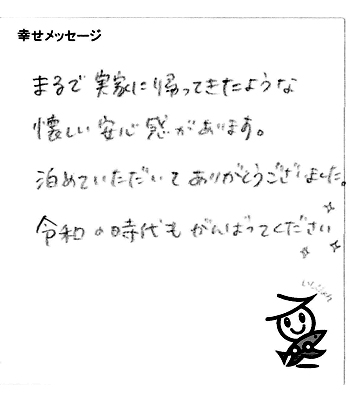 幸せメッセージ
まるで実家に帰ってきたような
懐しい安心感があります。
泊めていただいてありがとうございました。
令和の時代もがんばってください